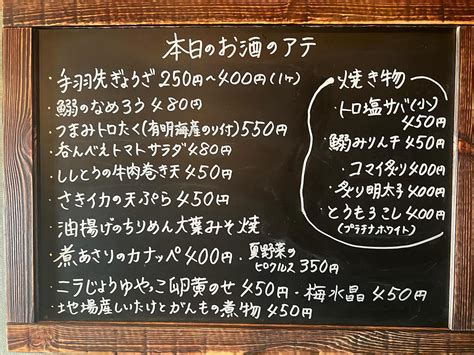 本日のお酒のアテ
・手羽先ぎょうざ 250円〜400円(1ヶ)
・鰯のなめろう 480円
・つまみトロたく(有明海産のり付)550円
・呑んべえトマトサラダ 480円
・ししとうの牛肉巻き天 450円
・さきイカの天ぷら 450円
・油揚げのちりめん大葉みそ焼
・煮あさりのカナッペ 400円・夏野菜の
ピクルス 350円
・ニラじょうゆやっこ卵黄のせ 450円・梅水晶 450円
・地場産しいたけとがんもの煮物 450円
焼き物
・トロ塩サバ(小)
450円
・鰯みりん干 450円
・コマイ炙り 400円
・炙り明太子 400円
・とうもろこし 400円
(プラチナホワイト)